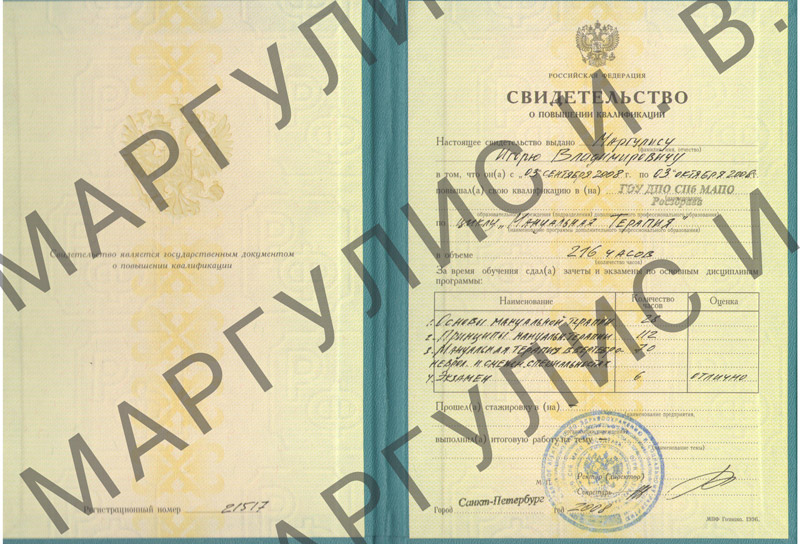 Свидетельство является государственным документом
о повышении квалификации
Регистрационный номер 21517
РОССИЙСКАЯ ФЕДЕРАЦИЯ
СВИДЕТЕЛЬСТВО
О ПОВЫШЕНИИ КВАЛИФИКАЦИИ
Настоящее свидетельство выдано Маргулису
(фамилия, имя, отчество)
Игорю Владимировичу
в том, что он(а) с „03 сентября 2008 г. по 03 октября 2008г.
повышал(а) свою квалификацию в (на) ГОУ ДПО СПб МАПО
Росздрава
образовательного учреждения (подразделения) дополнительного профессионального образования)
по циклу „Мануальная Терапия"
(наименование программы дополнительного профессионального образования)
в объеме 216 часов
(количество часов)
За время обучения сдал(а) зачеты и экзамены по основным дисциплинам
программы:
Наименование Количество часов Оценка
1. Основы мануальной терапии 28
2. Принципы мануальн. терапии 112
3. Мануальная терапия в
и смежн. специальностях
4. Экзамен 6 отлично
Прошел(а) стажировку в (на) –
(наименование предприятия,
выполнил(а) итоговую работу на тему –
(наименование темы)
М.П.
Ректор (директор)
Секретарь
Город Санкт-Петербург год 2008
МПФ Гознака. 1996.
МАРГУЛИС И. В.
МАРГУЛИС И. В.
МАРГУЛИС И
МАРГУ